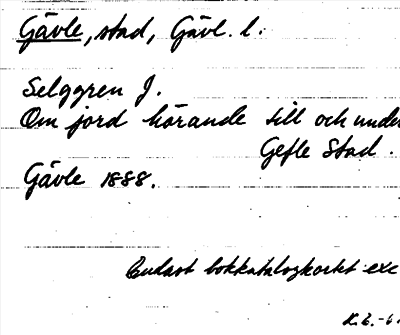 Gävle, stad, Gävl. l.
Selggren J.
Om jord hörande till och under
Gefle Stad.
Gävle 1888.
Endast bokkatalogkortet exc
K.L.-6.